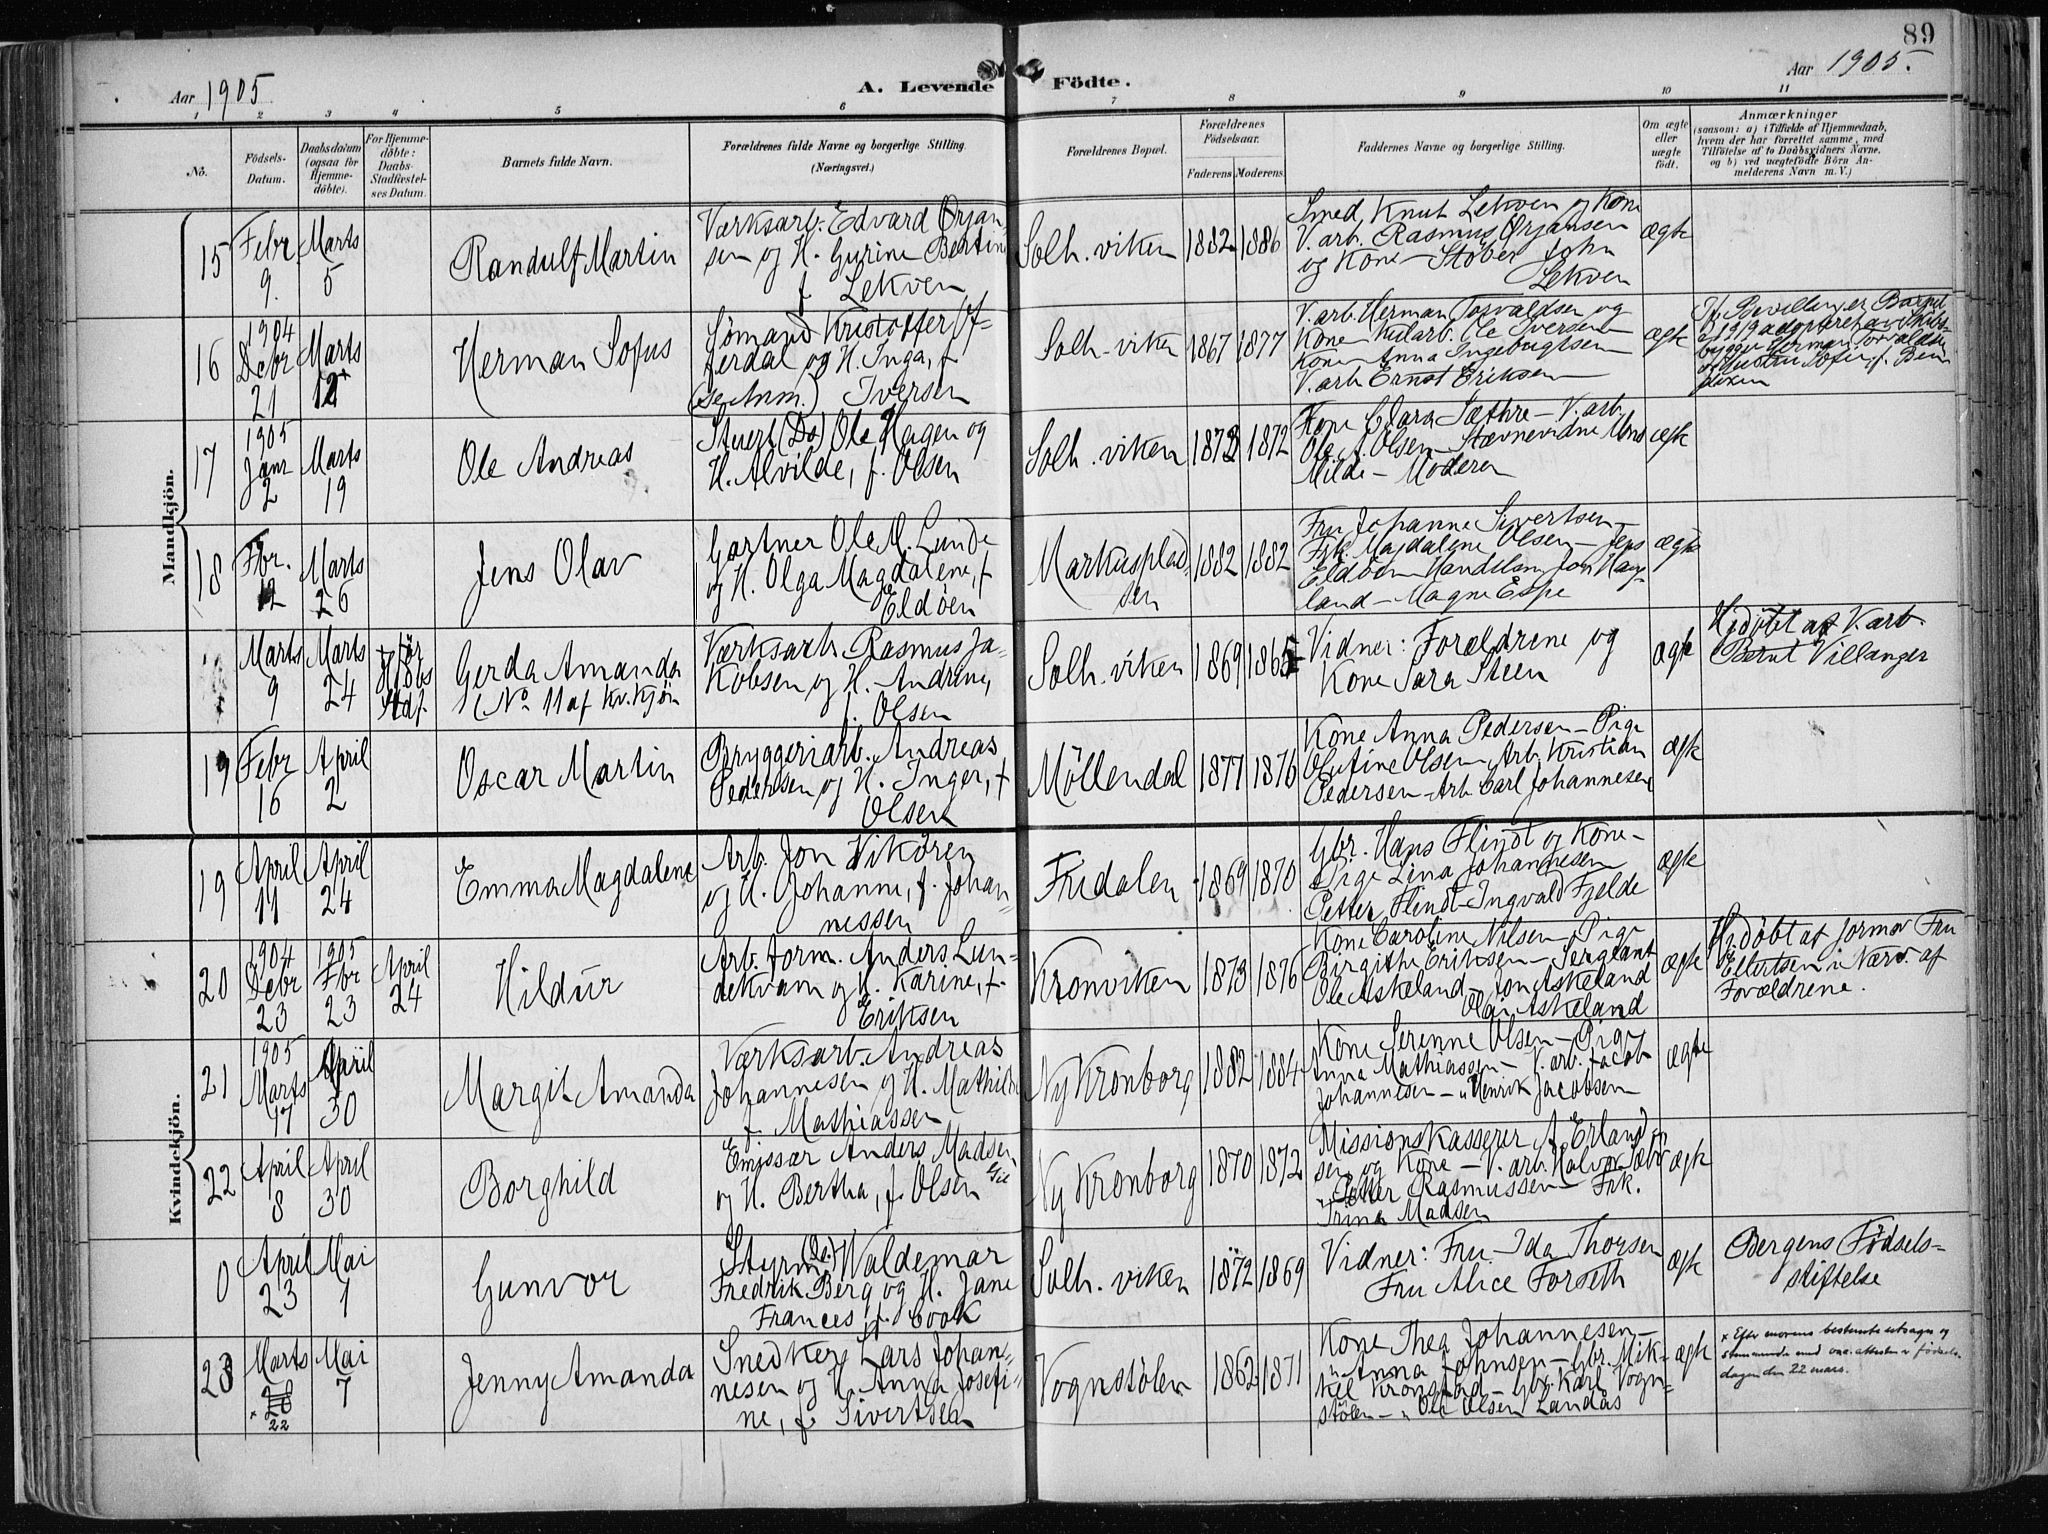 89
Aar 1905
A. Levende Födte.
Aar 1905.
1 2 3 4 5 6 7 8 9 10 11
No.
Födsels-Datum.
Daabsdatum (ogsaa for Hjemme-döbte).
For Hjemme-döbte: Daabs-Stadfæstel-ses Datum.
Barnets fulde Navn.
Forældrenes fulde Navne og borgerlige Stilling.
(Næringsvei.)
Forældrenes Bopæl.
Forældrenes Födselsaar.
Faderens Moderens
Faddernes Navne og borgerlige Stilling.
Om ægte eller uægte födt.
Anmærkninger
(saasom: a) i Tilfælde af Hjemmedaab,
hvem der har forrettet samme, med
Tilföielse af to Daabsvidners Navne,
og b) ved uægtefödte Börn An-
melderens Navn m. V.)
Mandkjön.
15 Febr. 9. Marts 5
Randulf Martin
Værksarb. Edvard Ørjan-
sen og H. Gurine Bertine
f. Lekven
Solh.viken 1882 1886
Smed Knut Lekven og Kone
V.arb. Rasmus Ørjansen
og Kone – Støber John
Lekven
ægte
16 1904 Debr 21 Marts 12
Herman Sofus
Sømand Kristoffer Of-
ferdal og H. Inga, f.
(se Anm.) Iversen
Solh.viken 1867 1877
V.arb. Herman Torvaldsen og
Kone Kularb. Ole Iversen
Kone Anna Ingebrigtsen
V.arb Ernst Eriksen
ægte
If. Bevilling er Barnet
1919 adopteret av Skibs-
bygger Herman Torvaldsen
og Hustru Sofie, f. Ben-
dixen
17 1905 Janr 2 Marts 19
Ole Andreas
Stuert (Ds) Ole Hagen og
H. Alvilde, f. Olsen
Solh.viken 1873 1872
Kone Clara Sæthre – V.arb.
Ole A. Olsen – Stævnevidne Mons
Milde – Moderen
ægte
18 Fbr. 12 Marts 26
Jens Olav
Gartner Ole M. Lunde
og H. Olga Magdalene, f.
Eldøen
Markusplad-
sen 1882 1882
Fru Johanne Sivertsen –
Frk. Magdalene Olsen – Jens
Eldøen Handelsm. Jon Haug-
land – Magne Espe
ægte
Marts 9 Marts 24 før Hj.döbs Stdf.
Gerda Amanda
(No 11 af Kv.Kjön
Værksarb. Rasmus Ja-
kobsen og H. Andrine,
f. Olsen
Solh.viken 1869 1865
Vidner: Forældrene og
Kone Sara Steen
ægte
Hjdøbt af V.arb.
Bernt Villanger
19 Febr 16 April 2
Oscar Martin
Bryggeriarb. Andreas
Pedersen og H. Inger, f.
Olsen
Möllendal 1871 1876
Kone Anna Pedersen – Pige
Olufine Olsen, Arb. Kristian
Pedersen – Arb. Carl Johannesen
ægte
Kvindekjön.
19 April 11 April 24
Emma Magdalene
Arb. Jon Vikören
og H. Johanne, f. Johan-
nessen
Fridalen 1869 1870
Gbr. Hans Flindt og Kone –
Pige Lina Johannesen
Petter Flindt – Ingvald Fjelde
ægte
20 1904 Debr 23 1905 Fbr 23 April 24
Hildur
Arb. form. Anders Lun-
dekvam og H. Karine, f.
Eriksen
Kronviken 1873 1876
Kone Caroline Nilsen – Pige
Birgithe Eriksen – Sergeant
Ole Askeland – Jon Askeland
Olai Askeland
ægte
Hj.döbt af Jormor Fru
Ellertsen i Nærv. af
Forældrene.
21 1905 Marts 17 April 30
Margit Amanda
Værksarb. Andreas
Johannesen og H. Mathilde
f. Mathiassen
Ny Kronborg 1882 1884
Kone Serenne Olsen – Pige
Anna Mathiassen – V.arb. Jacob
Johannesen – „ Henrik Jacobsen
ægte
22 April 8 April 30
Borghild
Emissær Anders Madsen
Gil
og H. Bertha, f. Olsen
Ny Kronborg 1870 1872
Missionskasserer A. Erland-
sen og Kone – V.arb. Halvor Sæbø
„ Petter Rasmussen – Frk.
Trina Madsen
ægte
0 April 23 Mai 1
Gunvor
Styrm. (Ds.) Waldemar
Fredrik Berg og H. Jane
Frances f. Cook
Solh.viken 1872 1869
Vidner: Fru Ida Thorsen
Fru Alice Forseth
ægte
Bergens Födsels-
stiftelse
23 Marts 20 × 22 Mai 7
Jenny Amanda
Snedker Lars Johan-
nesen og H. Anna Josefi-
ne, f. Sivertsen
Vognstölen 1862 1871
Kone Thea Johannesen –
„ Anna Johnsen – Gbr. Mik-
kel Kronstad – Gbr. Karl Vogn-
stölen – „ Ole Olsen Landås
ægte
× Efter morens bestemte utsagn og
stemmende med vac.attesten er födsels-
dagen den 22 mars.